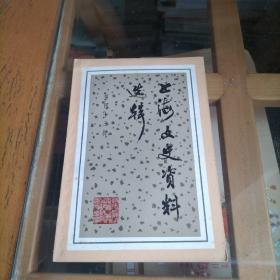 上海文史资料
选辑